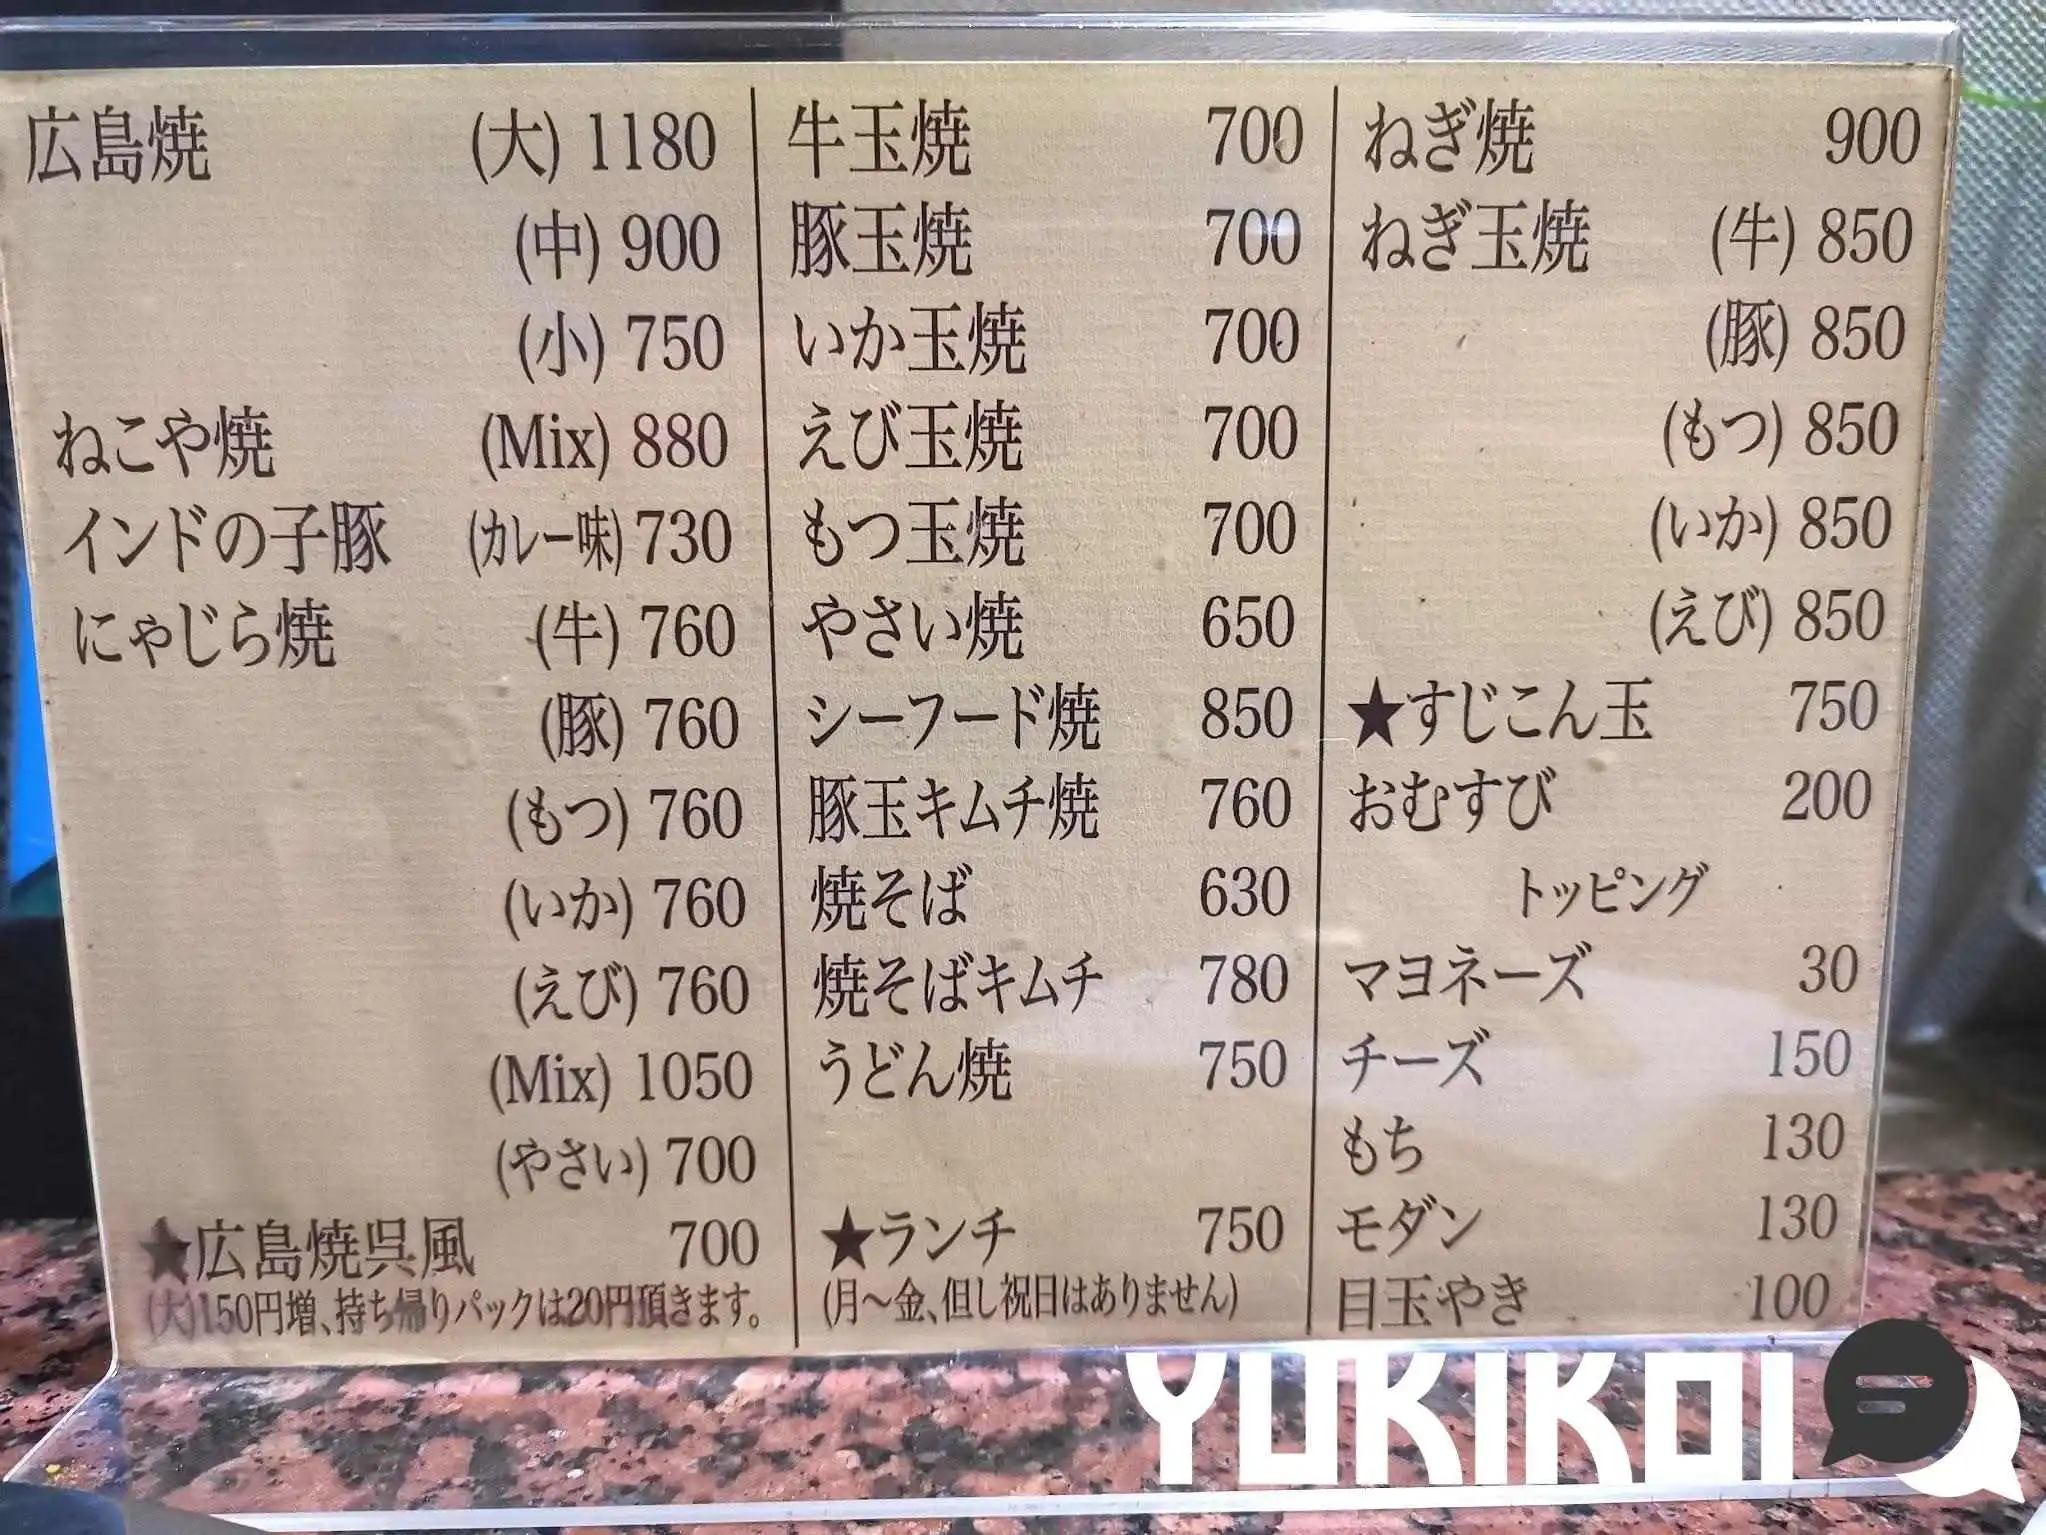 広島焼 (大) 1180
(中) 900
(小) 750
ねこや焼 (Mix) 880
インドの子豚 (カレー味) 730
にゃじら焼 (牛) 760
(豚) 760
(もつ) 760
(いか) 760
(えび) 760
(Mix) 1050
(やさい) 700
★広島焼呉風 700
(大)150円増、持ち帰りパックは20円頂きます。
牛玉焼 700
豚玉焼 700
いか玉焼 700
えび玉焼 700
もつ玉焼 700
やさい焼 650
シーフード焼 850
豚玉キムチ焼 760
焼そば 630
焼そばキムチ 780
うどん焼 750
★ランチ 750
(月〜金、但し祝日はありません)
ねぎ焼 900
ねぎ玉焼 (牛) 850
(豚) 850
(もつ) 850
(いか) 850
(えび) 850
★すじこん玉 750
おむすび 200
トッピング
マヨネーズ 30
チーズ 150
もち 130
モダン 130
目玉やき 100
YUKIKOI